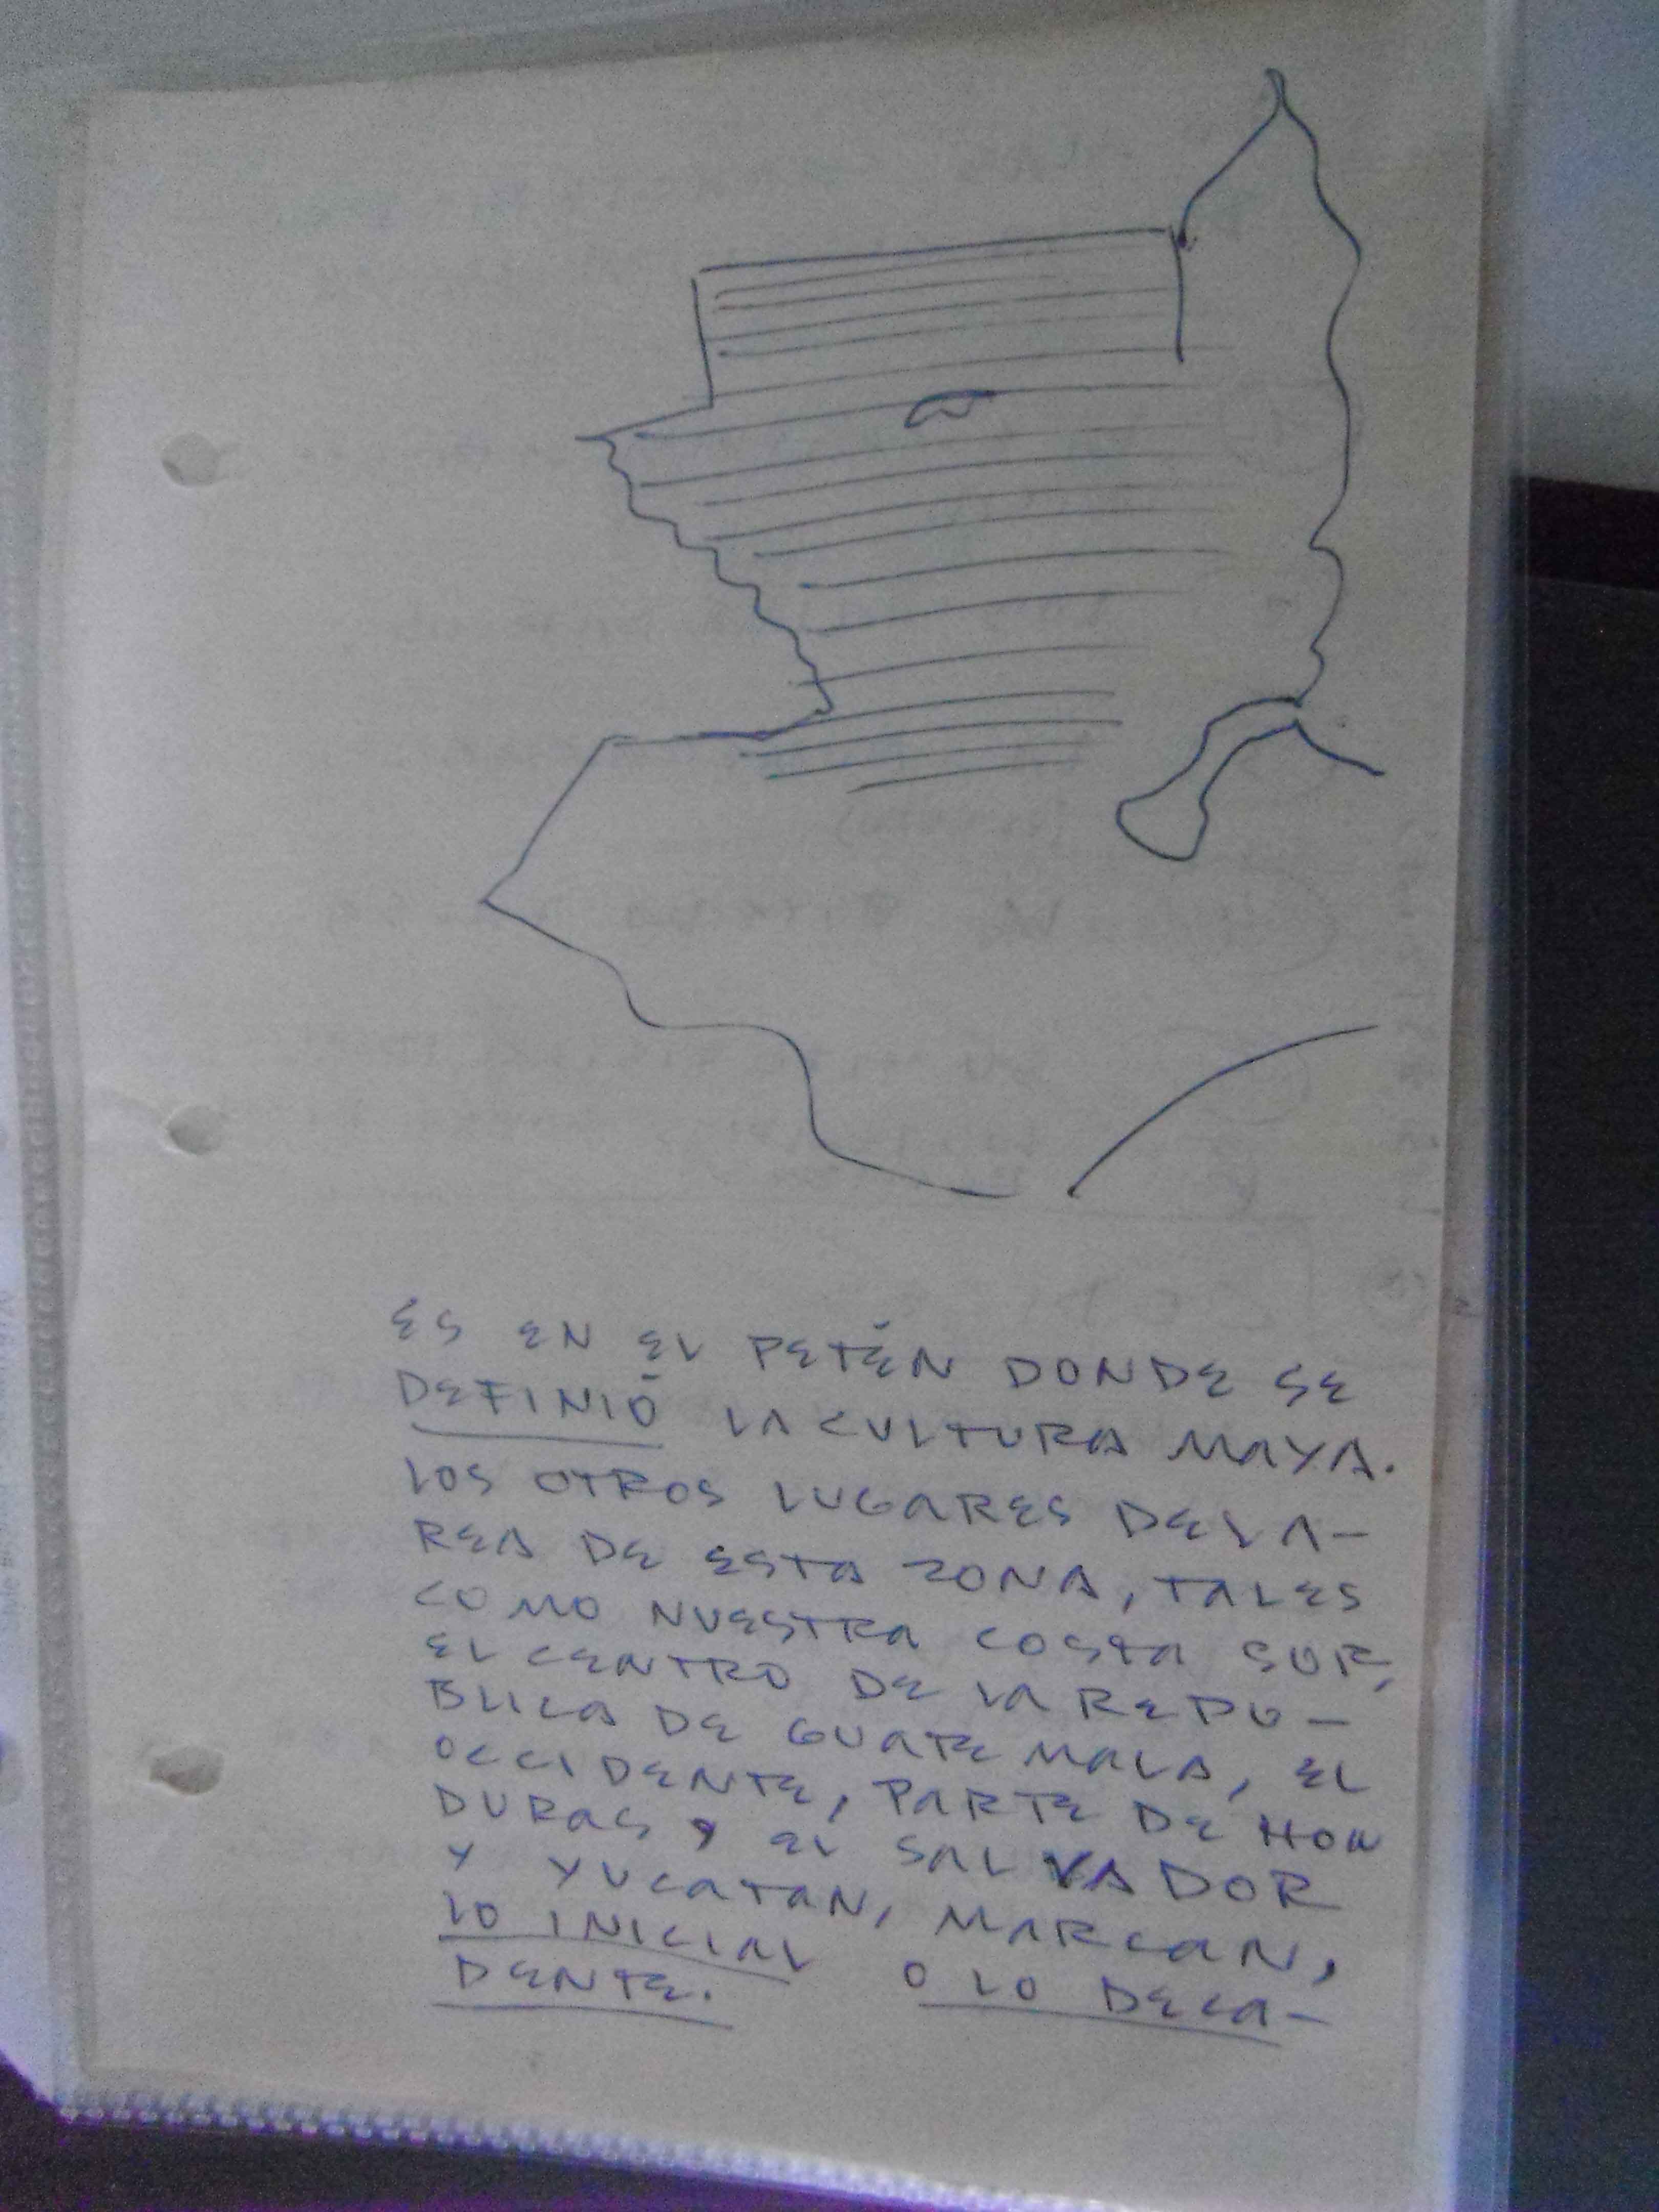 ES EN EL PETÉN DONDE SE
DEFINIÓ LA CULTURA MAYA.
LOS OTROS LUGARES DEL A-
REA DE ESTA ZONA, TALES
COMO NUESTRA COSTA SUR,
EL CENTRO DE LA REPU-
BLICA DE GUATEMALA, EL
OCCIDENTE, PARTE DE HON
DURAS Y EL SALVADOR
Y YUCATAN, MARCAN,
LO INICIAL O LO DECA-
DENTE.